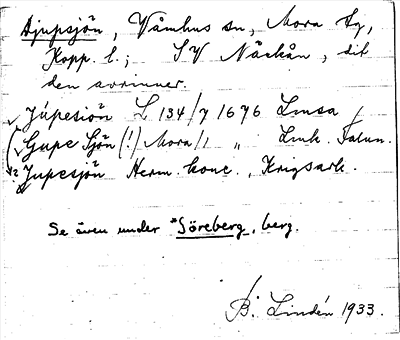 Djupsjön, Våmhus sn, Mora tg,
Kopp. l.; SV Näckån, dit
den avrinner.
Júpesiön L 134/7 1676 Lmsa
Gupe Sjön (!) Mora/1 " Lmk. Falun.
Jupesjön Herm. konc., Krigsark.
Se även under *Söreberg, berg.
B. Lindén 1933.